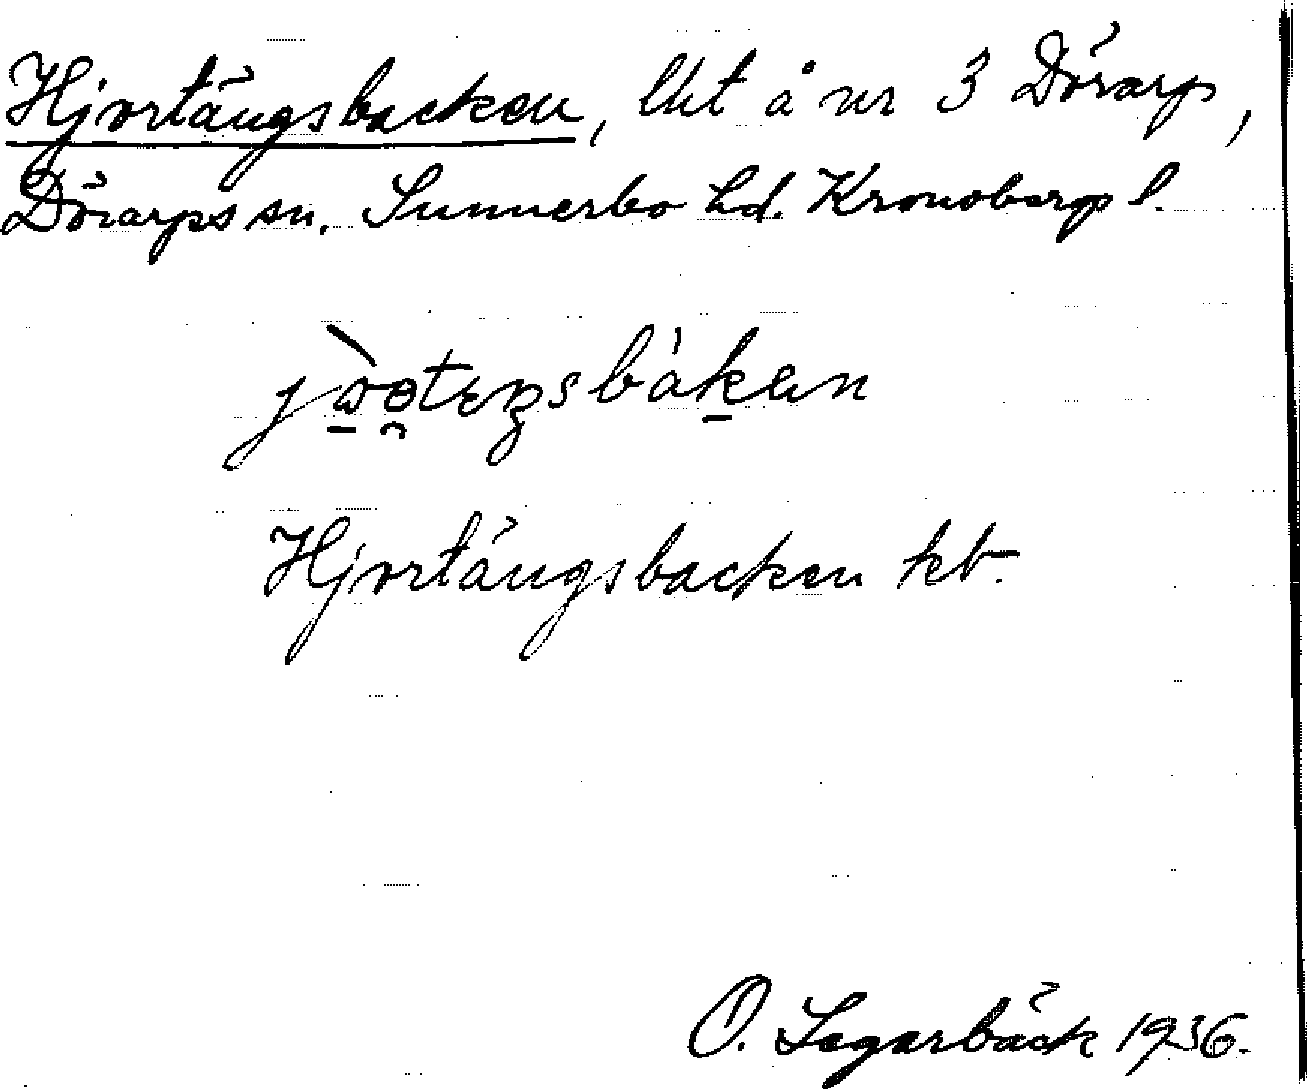 Hjortängsbacken, lht å nr 3 Dörarp,
Dörarps sn. Sunnerbo hd. Kronobergs l.
Hjortängsbacken kb.
O. Lagerbäck 1936.